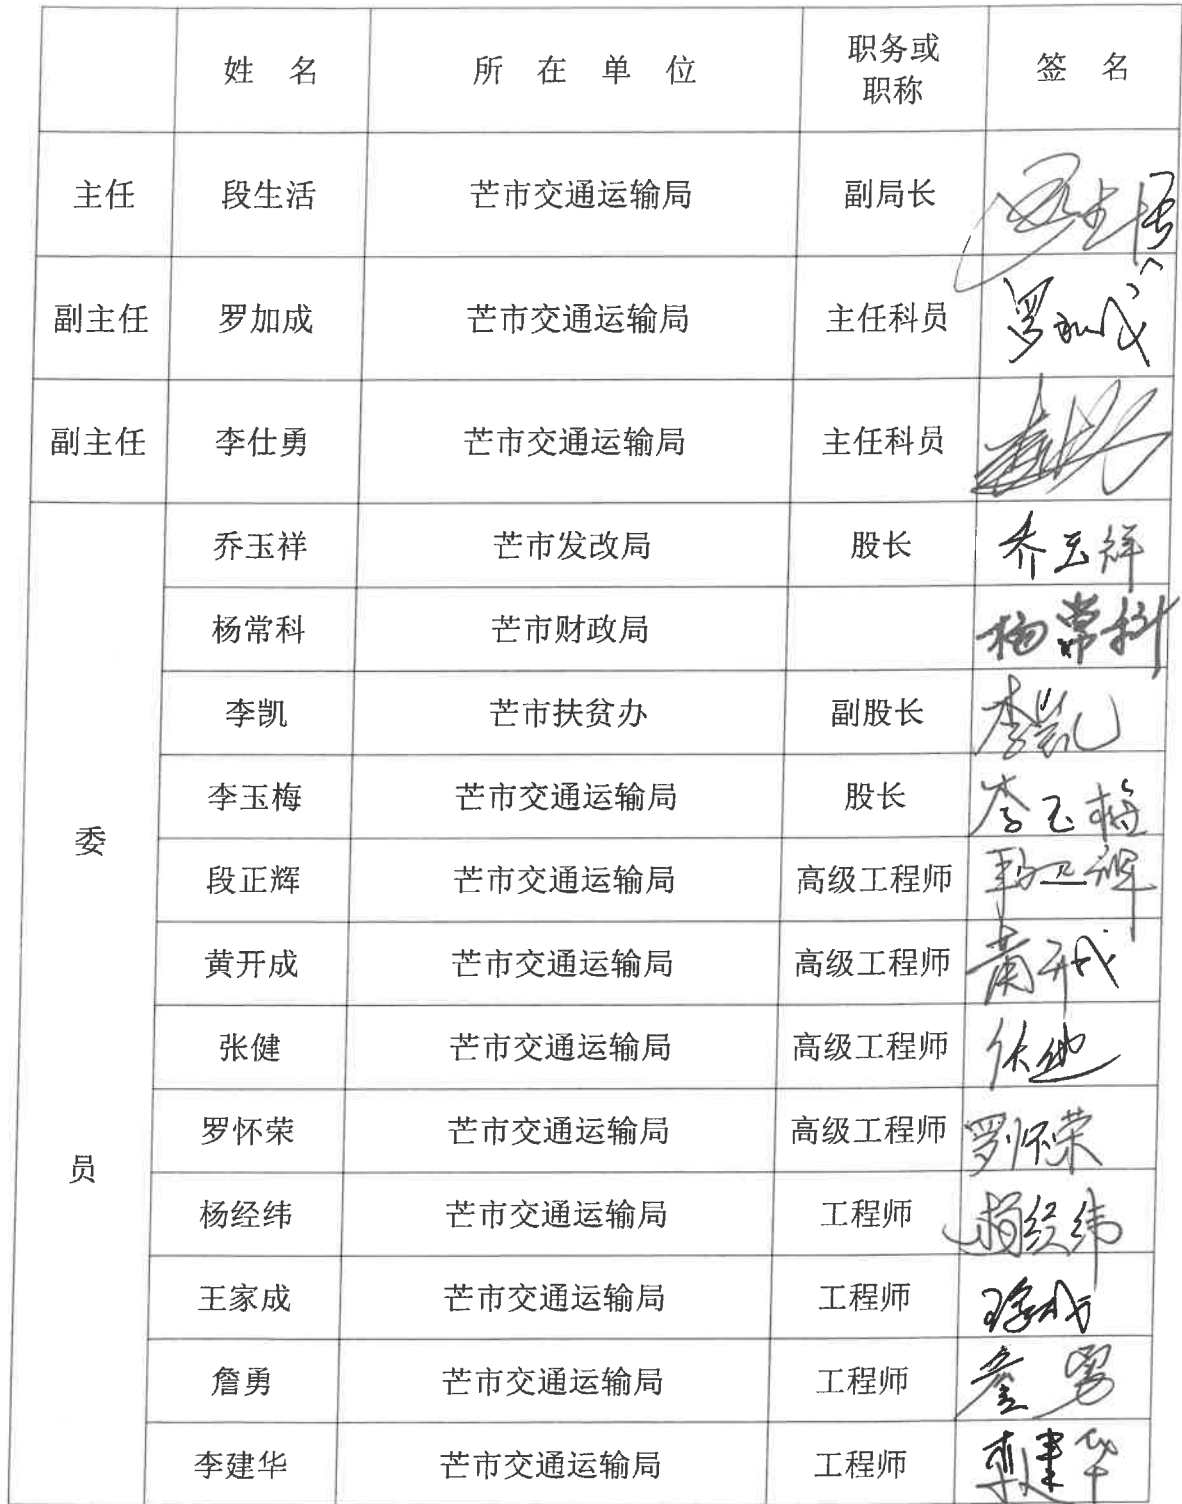 姓 名 所 在 单 位 职务或职称 签 名
主任 段生活 芒市交通运输局 副局长 段生活
副主任 罗加成 芒市交通运输局 主任科员 罗加成
副主任 李仕勇 芒市交通运输局 主任科员
委员
乔玉祥 芒市发改局 股长 乔玉祥
杨常科 芒市财政局 杨常科
李凯 芒市扶贫办 副股长 李凯
李玉梅 芒市交通运输局 股长 李玉梅
段正辉 芒市交通运输局 高级工程师 段正辉
黄开成 芒市交通运输局 高级工程师 黄开成
张健 芒市交通运输局 高级工程师 张健
罗怀荣 芒市交通运输局 高级工程师 罗怀荣
杨经纬 芒市交通运输局 工程师 杨经纬
王家成 芒市交通运输局 工程师 王家成
詹勇 芒市交通运输局 工程师 詹勇
李建华 芒市交通运输局 工程师 李建华